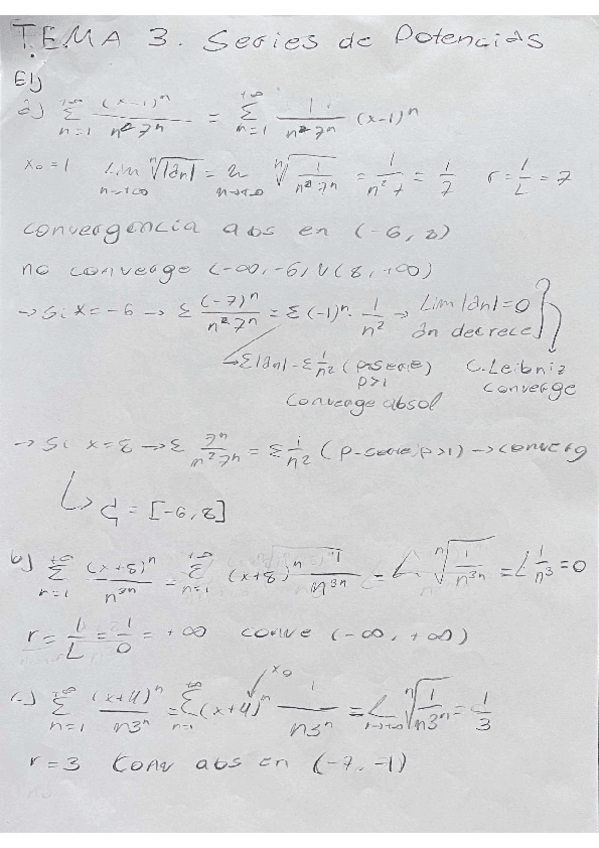 TEMA 3. Series de Potencias
E1)
a) Σ_{n=1}^{+∞} (x-1)^n / n^2 7^n = Σ_{n=1}^{+∞} 1 / n^2 7^n (x-1)^n
x_0 = 1 Lim_{n→+∞} ⁿ√|an| = ⁿ√(1 / n^2 7^n) = 1 / n^2 7 = 1/7 r = 1/L = 7
convergencia abs en (-6, 8)
no converge (-∞, -6) U (8, +∞)
→ Si x = -6 → Σ (-7)^n / n^2 7^n = Σ (-1)^n · 1/n^2 → Lim |an| = 0
an decrece
Σ|an| = Σ 1/n^2 (p-serie) C. Leibniz
p>1 converge
Converge absol
→ Si x = 8 → Σ 7^n / n^2 7^n = Σ 1/n^2 (p-serie, p>1) → converg
= [-6, 8]
b) Σ_{n=1}^{+∞} (x+8)^n / n^{3n} = Σ_{n=1}^{+∞} (x+8)^n 1 / n^{3n} = L ⁿ√(1 / n^{3n}) = L 1/n^3 = 0
r = 1/L = 1/0 = +∞ conve (-∞, +∞)
x_0
c) Σ_{n=1}^{+∞} (x+4)^n / n3^n = Σ_{n=1}^{+∞} (x+4)^n 1 / n3^n = L_{n→+∞} ⁿ√(1 / n3^n) = 1/3
r = 3 Conv abs en (-7, -1)